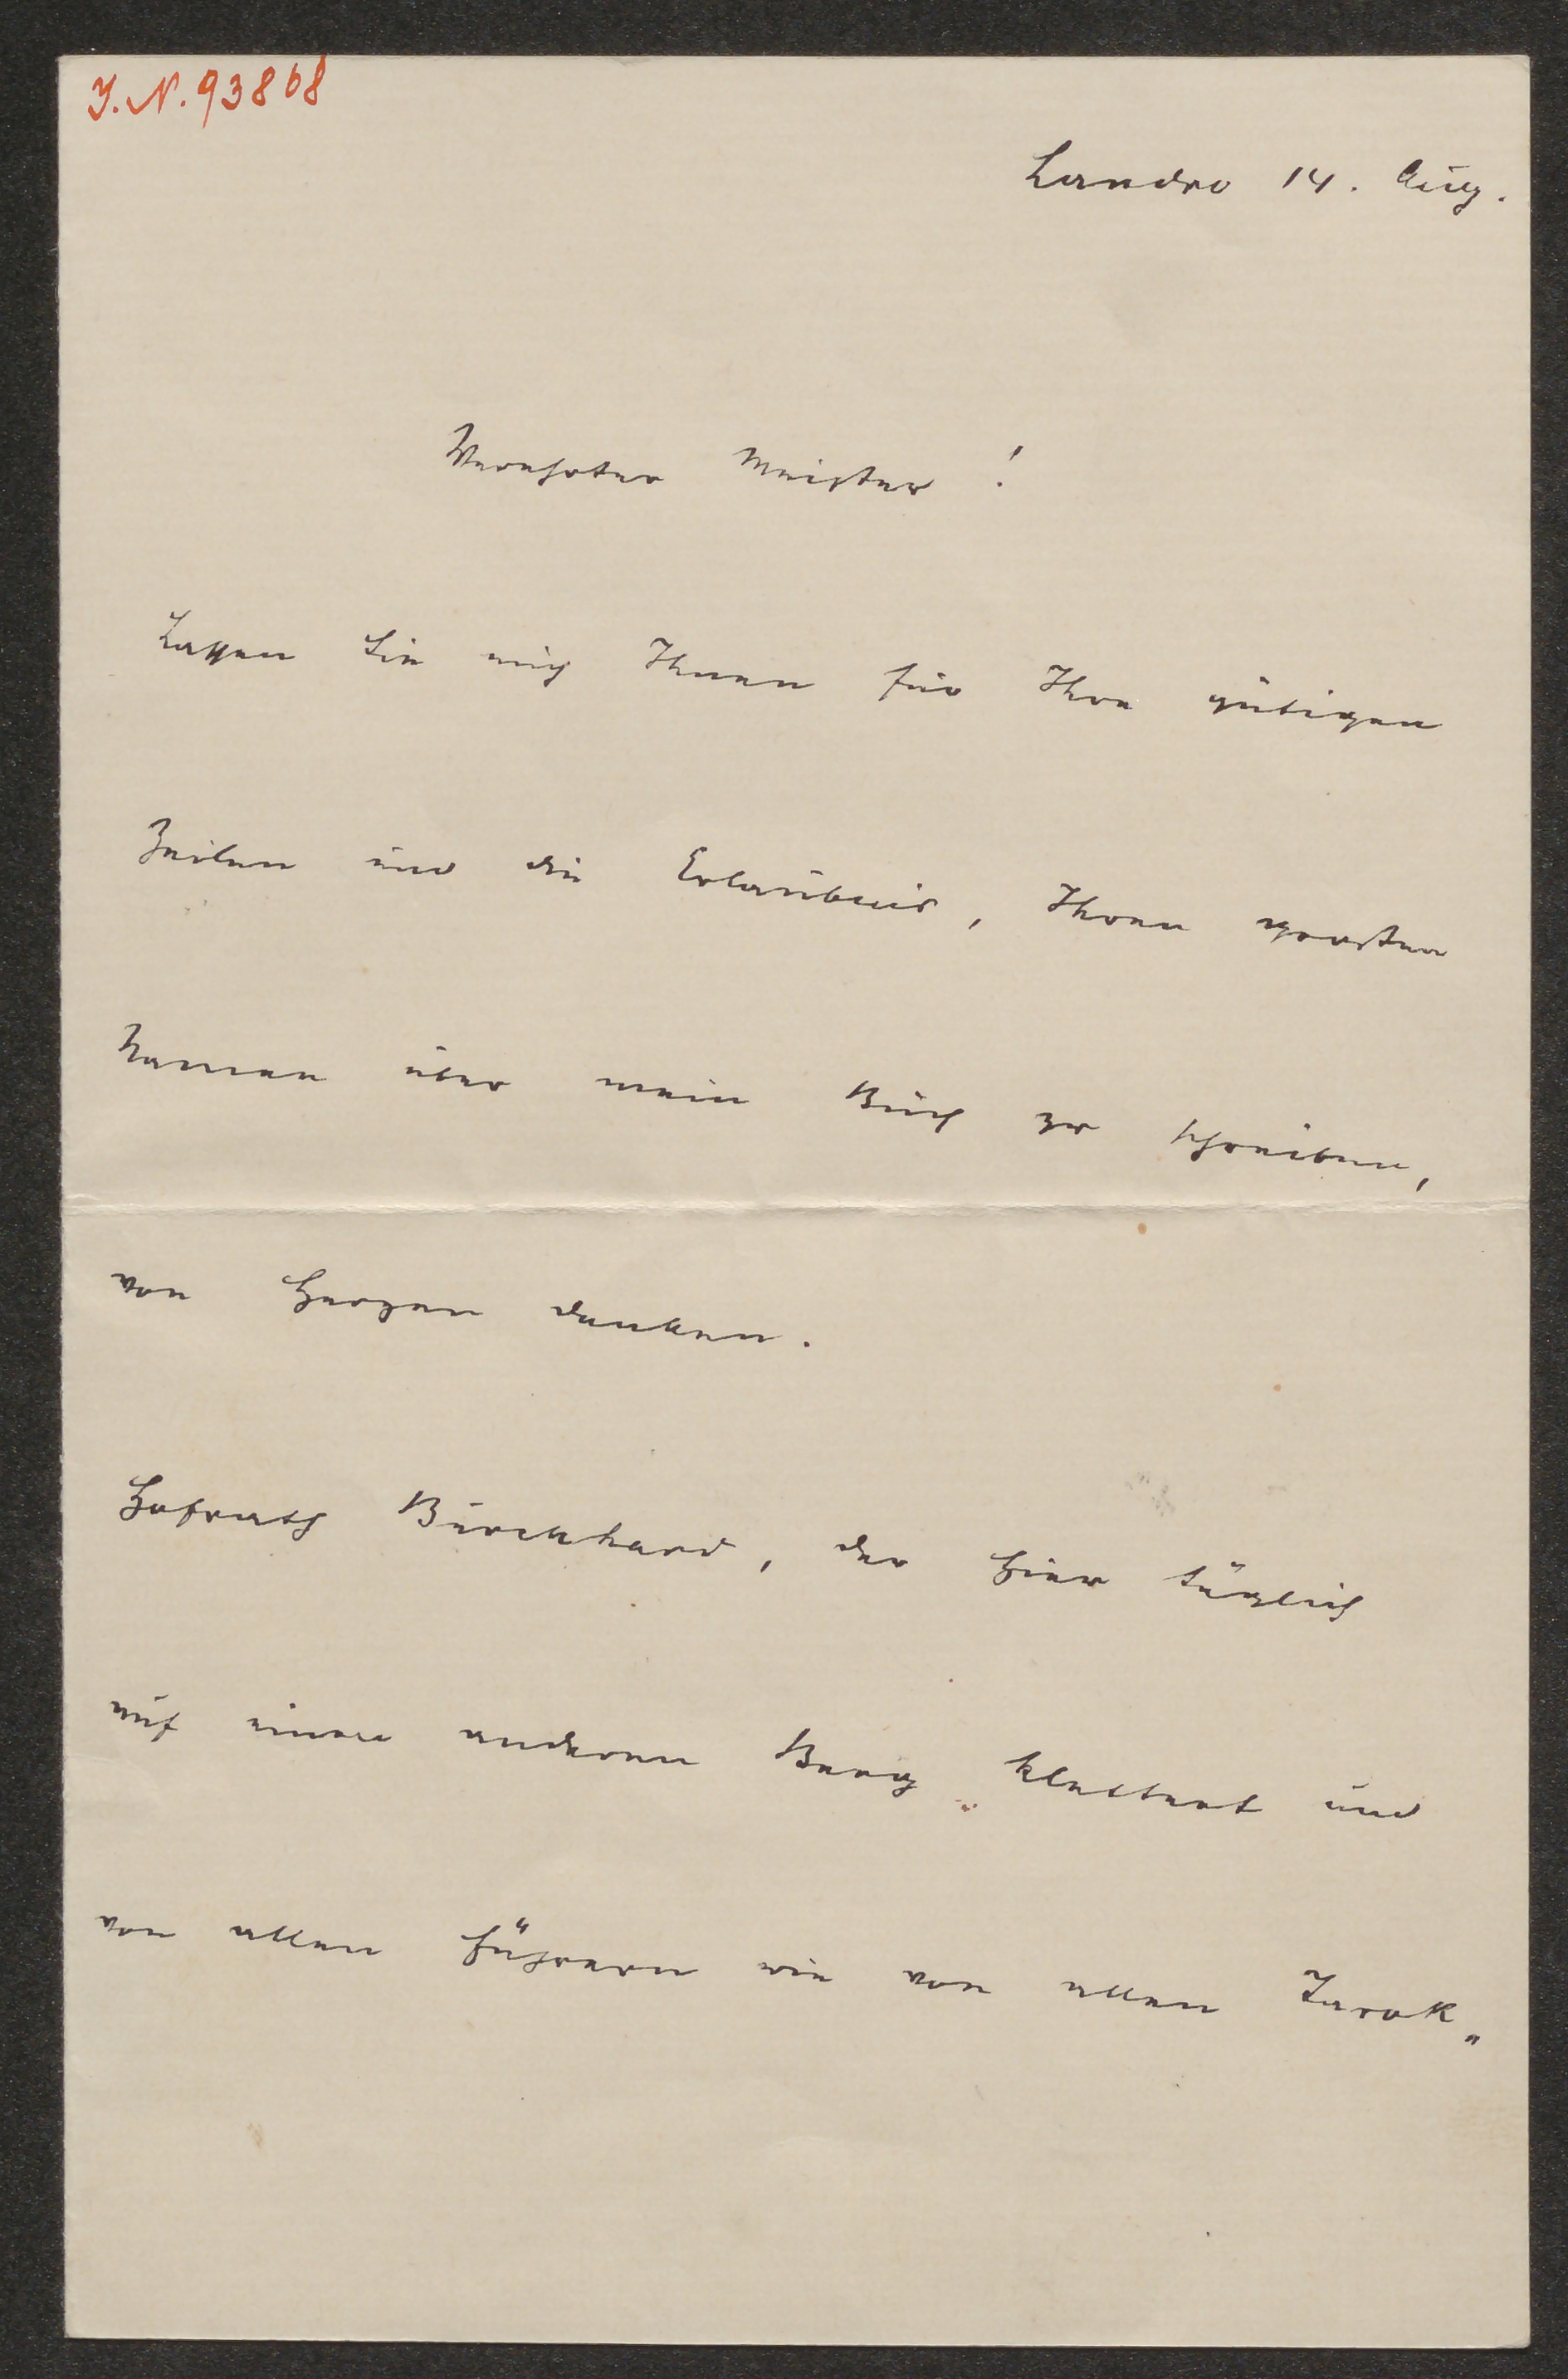 J. N. 93868
Landro 14. Aug.
Verehrter Meister!
Lassen Sie mich Ihnen für Ihre gütigen
Zeilen und die Erlaubnis, Ihren großen
Namen über mein Buch zu schreiben,
von Herzen danken.
Hofrath Burckhard, der hier täglich
auf einen anderen Berg klettert und
von allen Führern wie von allen Tarok-